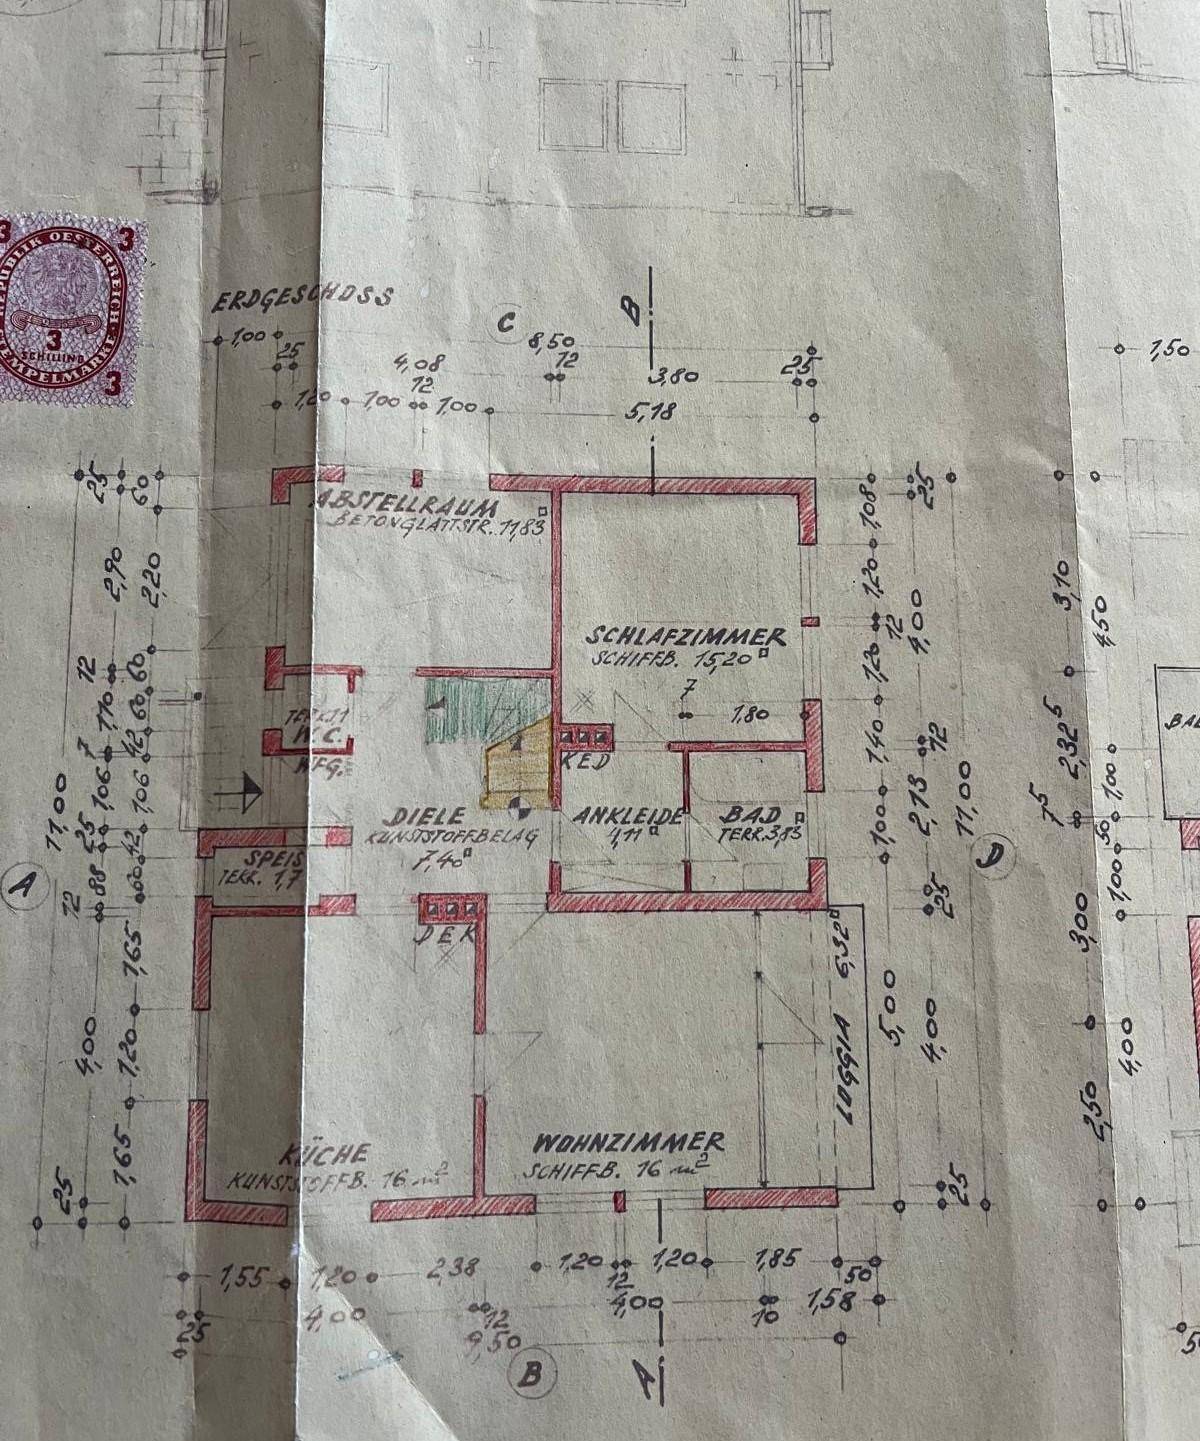 REPUBLIK OESTERREICH
3
3
3
3
SCHILLING
STEMPELMARKE
ERDGESCHOSS
C
B
1,00
8,50
25
4,08
12
3,80
25
1,20
1,00
12
1,00
5,18
1,50
25
60
2,90
2,20
12
60
1,10
60
7
42
1,06
1,06
11,00
25
42
88
60
12
1,65
4,00
1,20
1,65
25
A
ABSTELLRAUM
BETONGLATTSTR. 11,83
SCHLAFZIMMER
SCHIFFB. 15,20
7
1,80
W.C.
WFG.
KED
DIELE
KUNSTSTOFFBELAG
7,40
ANKLEIDE
4,11
BAD
TERR. 3,83
SPEIS
TERR. 1,7
DEK
KÜCHE
KUNSTSTOFFB. 16 m²
WOHNZIMMER
SCHIFFB. 16 m²
LOGGIA 6,32
1,08
25
1,20
12
4,00
1,20
1,40
12
1,00
2,13
11,00
25
5,00
4,00
25
D
3,10
4,50
2,32⁵
1,00
7⁵
50
1,00
3,00
4,00
2,50
BAD
1,55
1,20
2,38
1,20
12
1,20
1,85
50
4,00
12
4,00
10
1,58
25
9,50
B
A